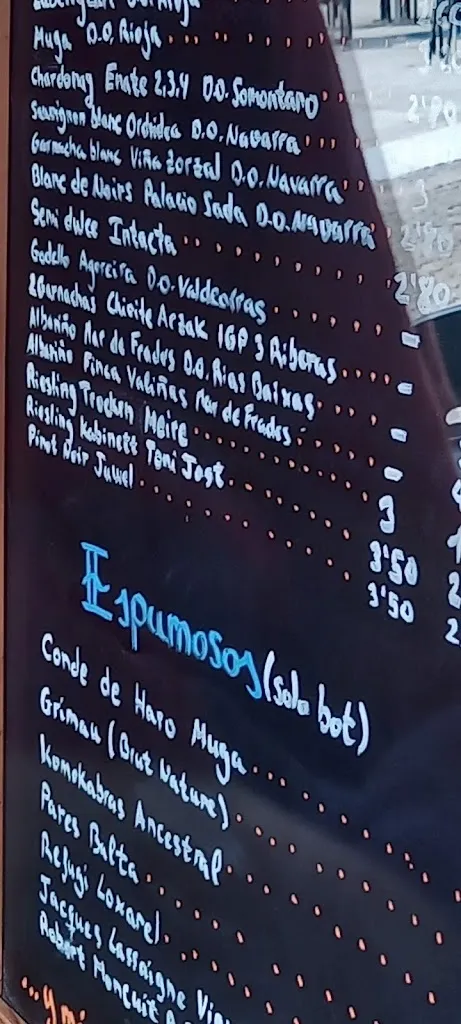 Muga D.O. Rioja
Chardonay Enate 2,3,4 D.O. Somontano 2'90
Sauvignon blanc Orchidea D.O. Navarra
Garnacha blanc Viña Zorzal D.O. Navarra 3
Blanc de Noirs Palacio Sada D.O. Navarra 2'70
Semi dulce Intacta 2'80
Godello Agoreira D.O. Valdeorras -
2 Garnachas Chivite Arzak IGP 3 Riberas -
Albariño Mar de Frades D.O. Rias Baixas -
Albariño Finca Valiñas Mar de Frades -
Riesling Trocken Meire 3
Riesling Kabinett Toni Jost 3'50
Pinot Noir Juwel 3'50
Espumosos (solo bot)
Conde de Haro Muga
Grimau (Brut Nature)
Komokabras Ancestral
Pares Balta
Refugi Loxarel
Jacques Lassaigne
Robert Moncuit